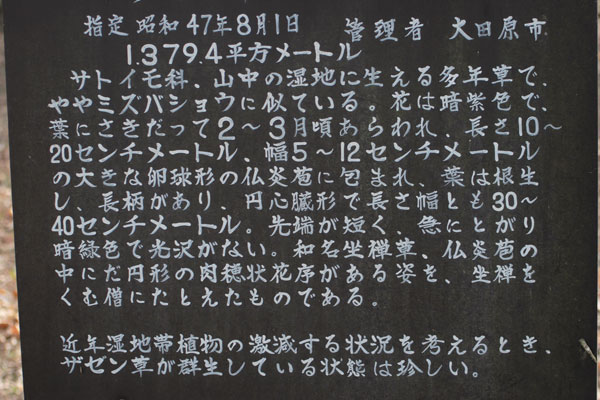 指定 昭和47年8月1日 管理者 大田原市
1.379.4平方メートル
サトイモ科、山中の湿地に生える多年草で、
ややミズバショウに似ている。花は暗紫色で、
葉にさきだって2〜3月頃あらわれ、長さ10〜
20センチメートル、幅5〜12センチメートル
の大きな卵球形の仏炎苞に包まれ、葉は根生
し、長柄があり、円心臓形で長さ幅とも30〜
40センチメートル。先端が短く、急にとがり
暗緑色で光沢がない。和名坐禅草、仏炎苞の
中にだ円形の肉穂状花序がある姿を、坐禅を
くむ僧にたとえたものである。
近年湿地帯植物の激減する状況を考えるとき、
ザゼン草が群生している状態は珍しい。